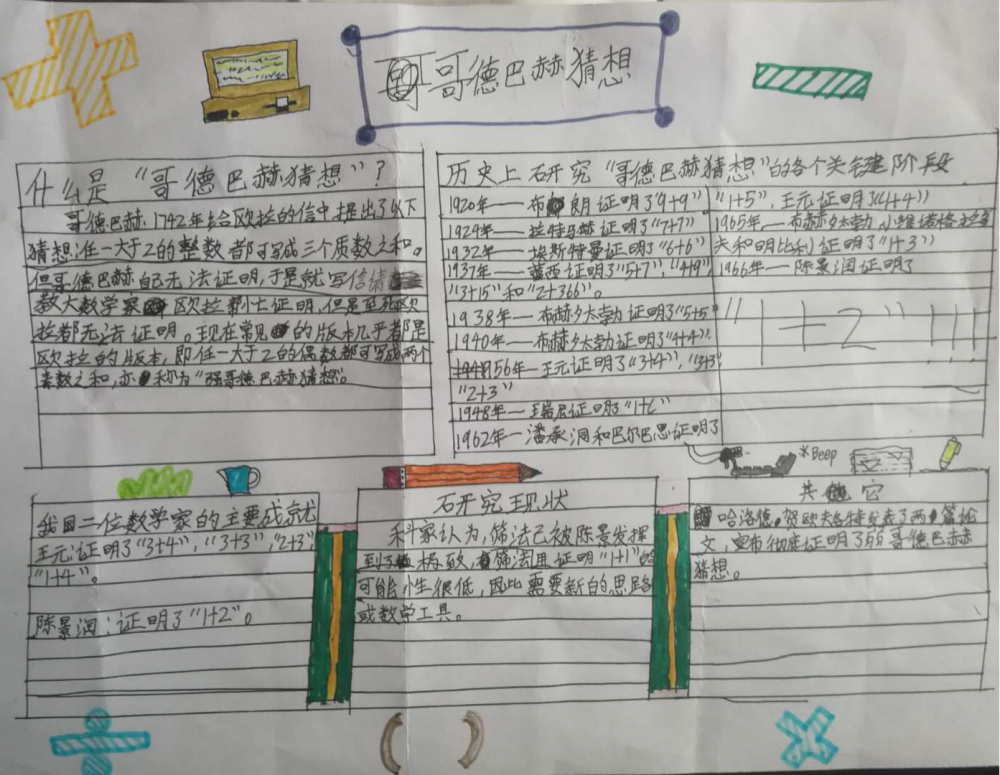 哥德巴赫猜想
什么是“哥德巴赫猜想”?
哥德巴赫1742年给欧拉的信中提出了以下
猜想:任一大于2的整数都可写成三个质数之和。
但哥德巴赫自己无法证明,于是就写信请
教大数学家欧拉帮忙证明,但是至死欧
拉都无法证明。现在常见的版本几乎都是
欧拉的版本,即任一大于2的偶数都可写成两个
素数之和,亦称为“强哥德巴赫猜想”。
历史上研究“哥德巴赫猜想”的各个关键阶段
1920年——布朗证明了“9+9”
1924年——拉特马赫证明了“7+7”
1932年——埃斯特曼证明了“6+6”
1937年——蕾西证明了“5+7”,“4+9”,
“3+15”和“2+366”。
1938年——布赫夕太勃证明了“5+5”
1940年——布赫夕太勃证明了“4+4”.
56年——王元证明了“3+4”,“3+3”
“2+3”
1948年——瑞尼证明了“1+c”
1962年——潘承洞和巴尔巴恩证明了
“1+5”,王元证明了“1+4”
1965年——布赫夕太勃,小维诺格拉多
夫和朋比利证明了“1+3”
1966年——陈景润证明了
“1+2”!!!
*Beep
我国二位数学家的主要成就
王元:证明了“3+4”,“3+3”,“2+3”,
“1+4”。
陈景润:证明了“1+2”。
研究现状
科学家认为,筛法已被陈景发挥
到了极致,筛法用证明“1+1”的
可能性很低,因此需要新的思路
或数学工具。
其它
哈洛德,贺欧夫各特发表了两篇论
文,宣布彻底证明了弱哥德巴赫
猜想。